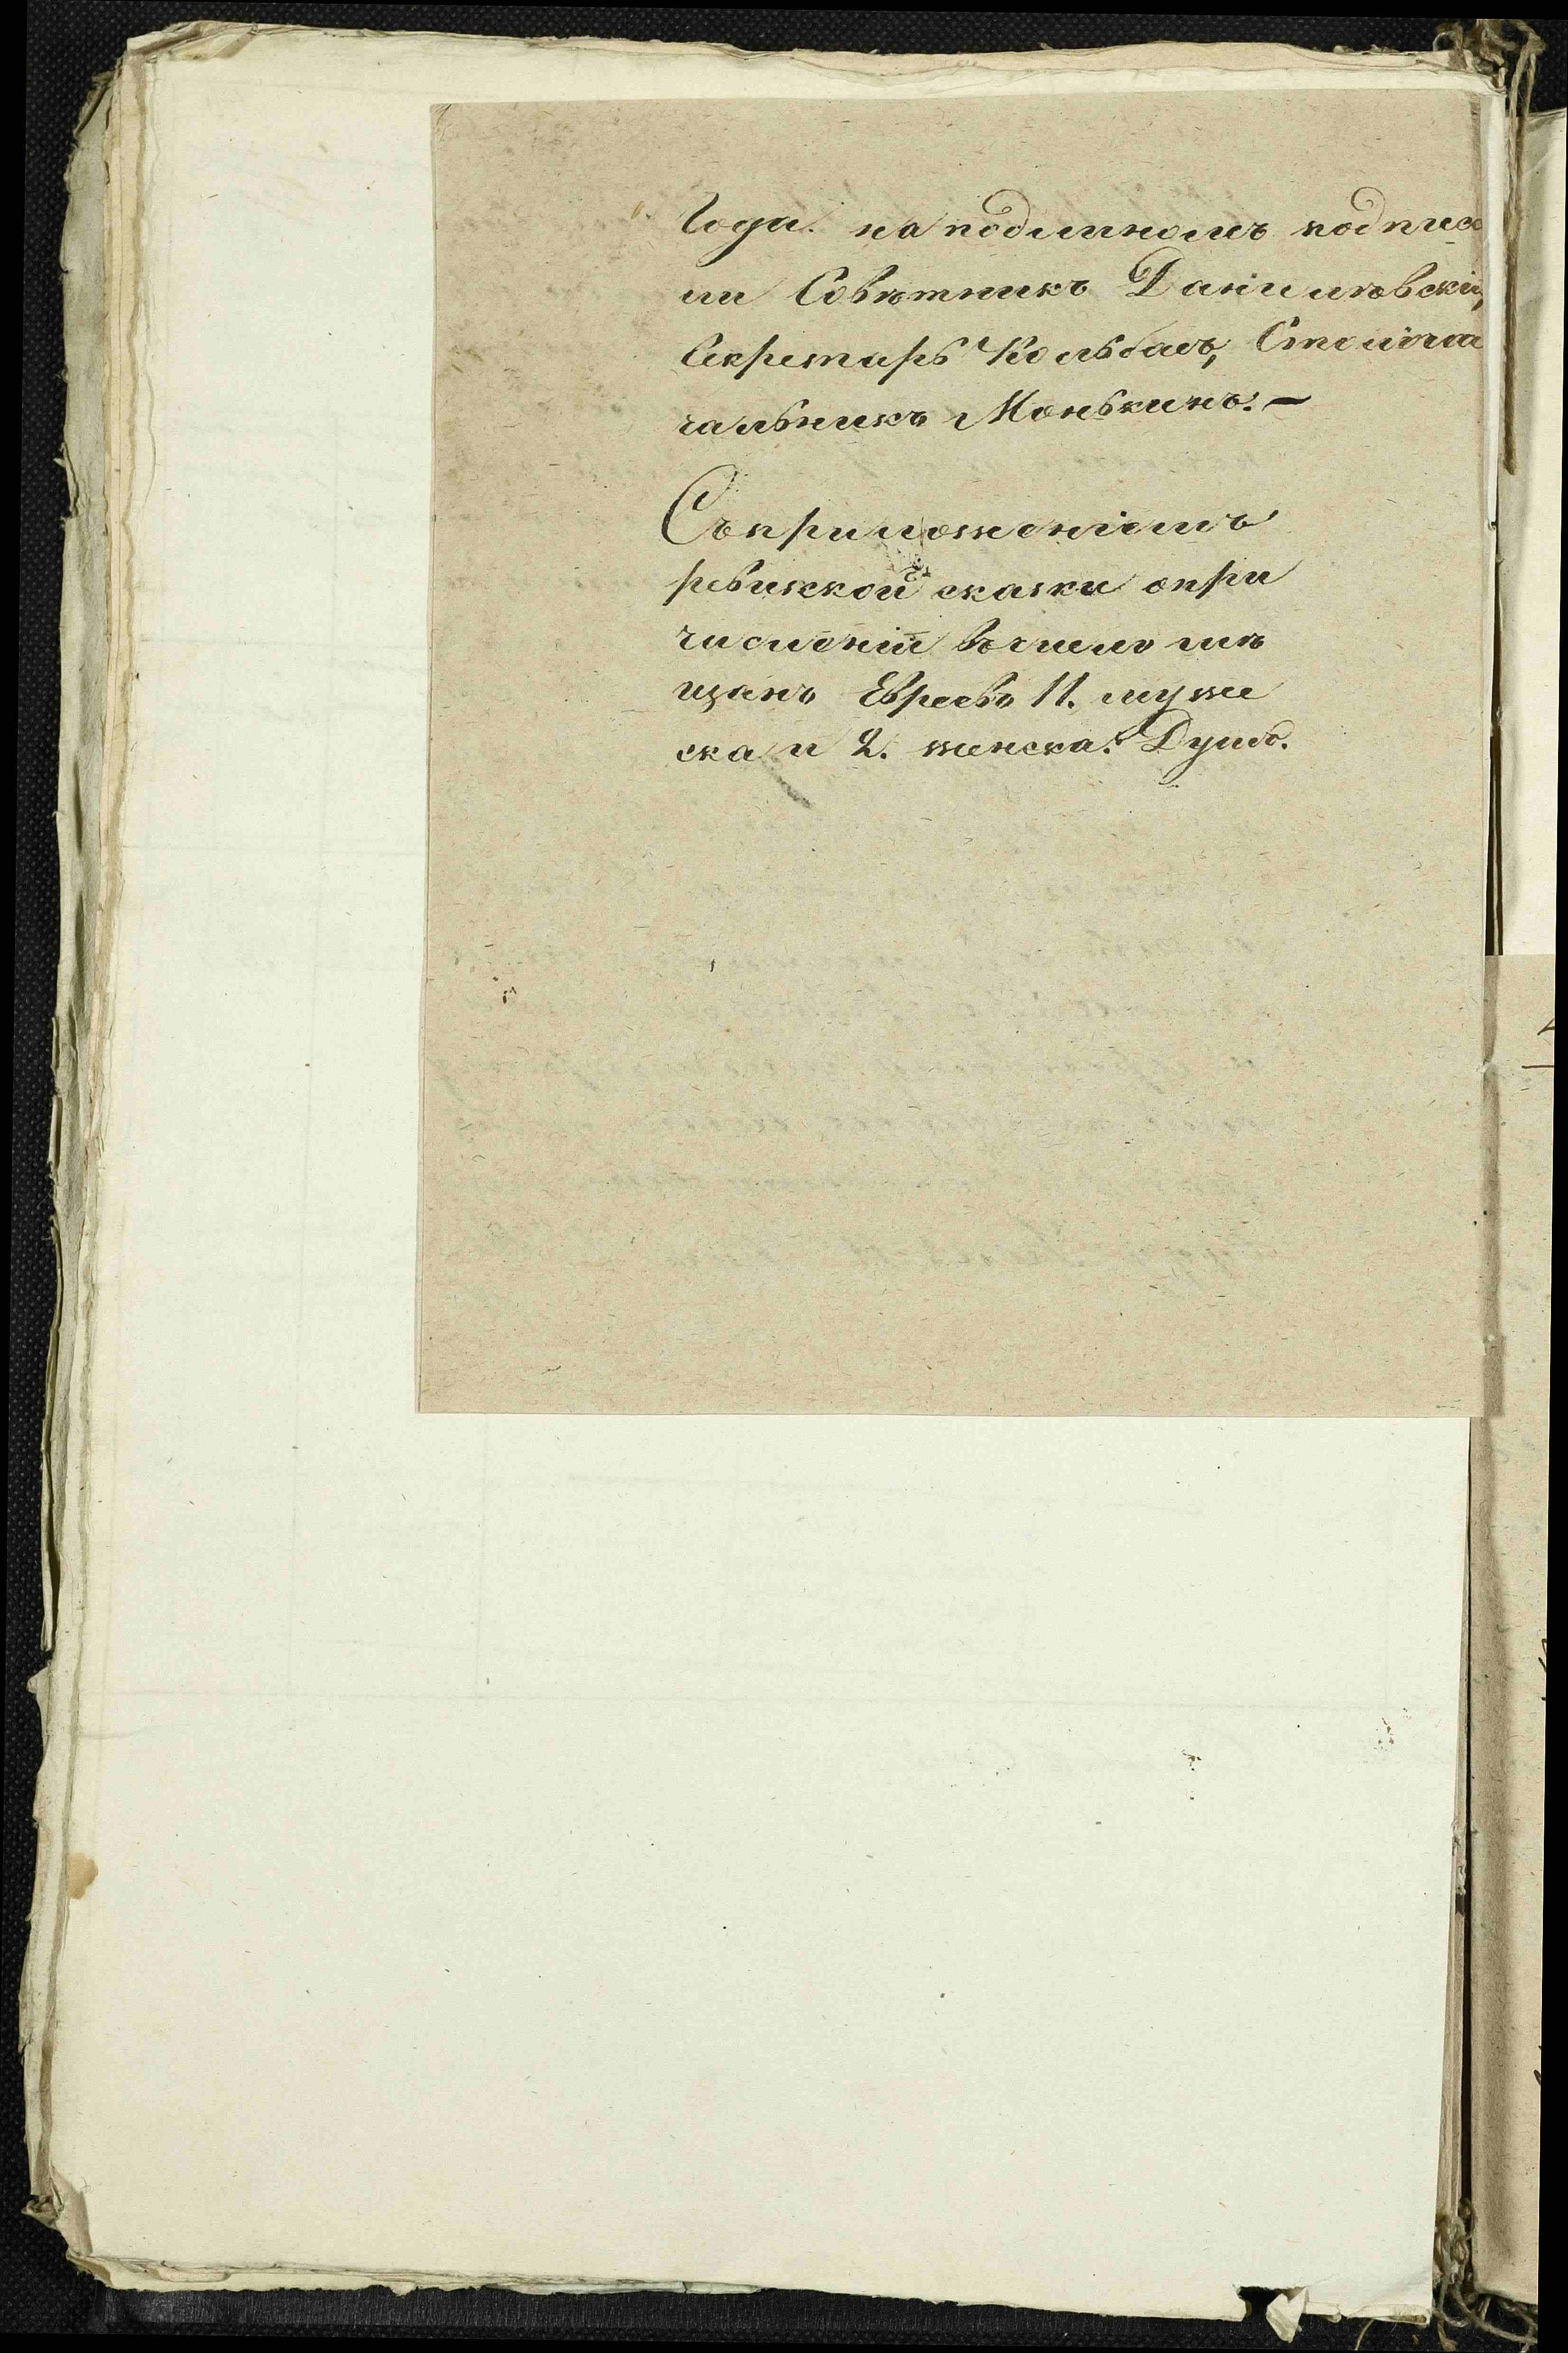 Года. на подлинномъ подписа
ли Совѣтникъ Даниловскій,
Секретарь Кольбасъ, Столона
чальникъ Монькинъ. —
Съ приложеніемъ
ревижкой сказки опри
численіи въ число мѣ
щанъ Евреевъ 11. муже
ска и 2. женска. Душъ.